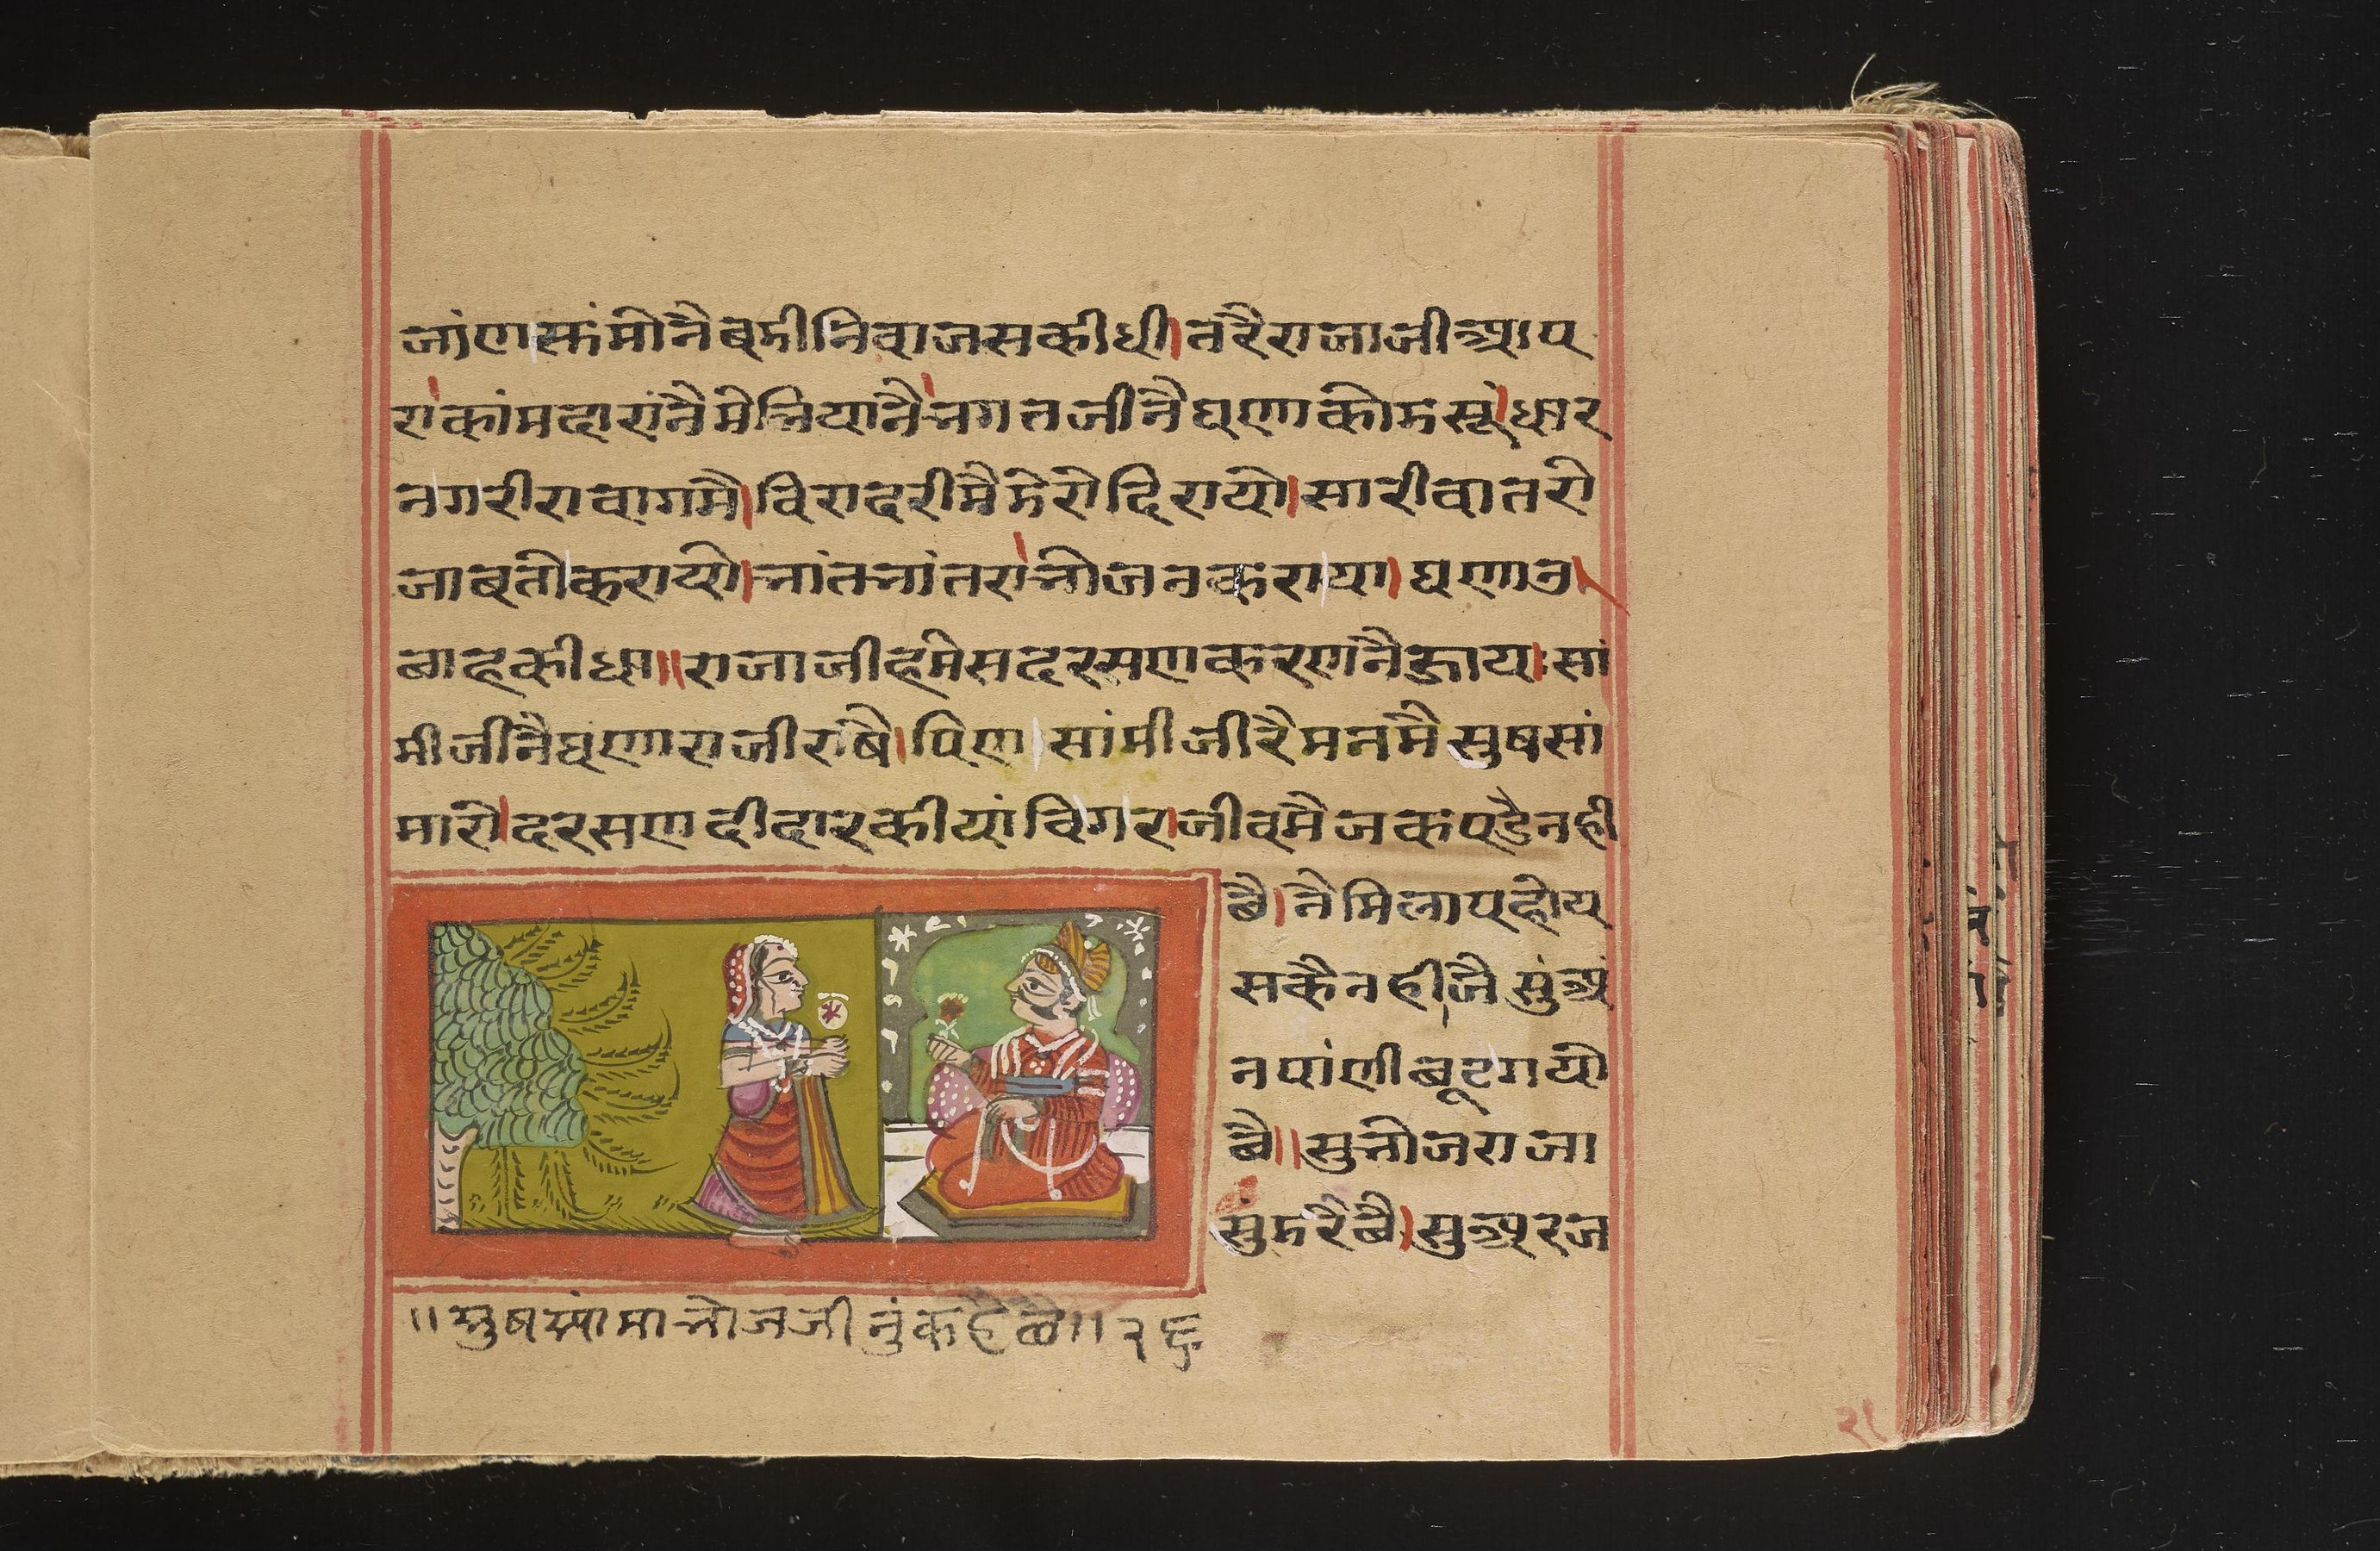 जांण सांमीनै बडी निवाजस कीधी। तरै राजाजी आप
रा कांमदारांनै मेलिया नै भगतजीनै घणा कोडसूं। धार
नगरी रा वागमै। विरादरीमै डेरो दिरायो। सारी वातरो
जाबतो करायो। भांत भांतरा भोजन कराया। घणा उ
छाह कीधा॥ राजाजी हमेस दरसण करणनै जाय। सां
मीजीनै घणा राजी राषै। पिण सांमीजीरै मनमै सुषसां
मारो। दरसण दीदार कीयां विगर। जीवमै जक पडै नही
छै। नै मिलाप होय
सकै नही। जै सुं अं
न पांणी छूट गयो
छै॥ सु भोजराजा
सुं डरै छै। सु अरज
॥ सुषसांमा भोजजी नुं कहै छै॥ २६
२१